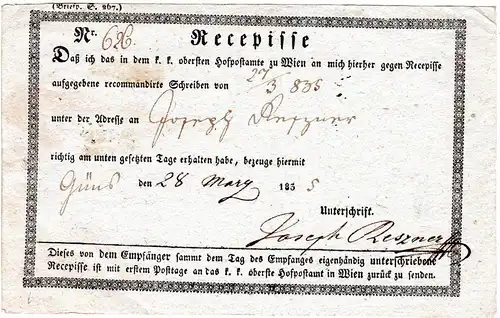 (Briefp. S. 267.)
Nr. 626. Recepisse
Daß ich das in dem k. k. obersten Hofpostamte zu Wien an mich hierher gegen Recepisse
aufgegebene recommandirte Schreiben von 27/3 835
unter der Adresse an Joseph Reszner
richtig am unten gesetzten Tage erhalten habe, bezeuge hiermit
Güns den 28 Marz 1835
Unterschrift.
Joseph Reszner
Dieses von dem Empfänger sammt dem Tag des Empfanges eigenhändig unterschriebene
Recepisse ist mit erstem Posttage an das k. k. oberste Hofpostamt in Wien zurück zu senden.